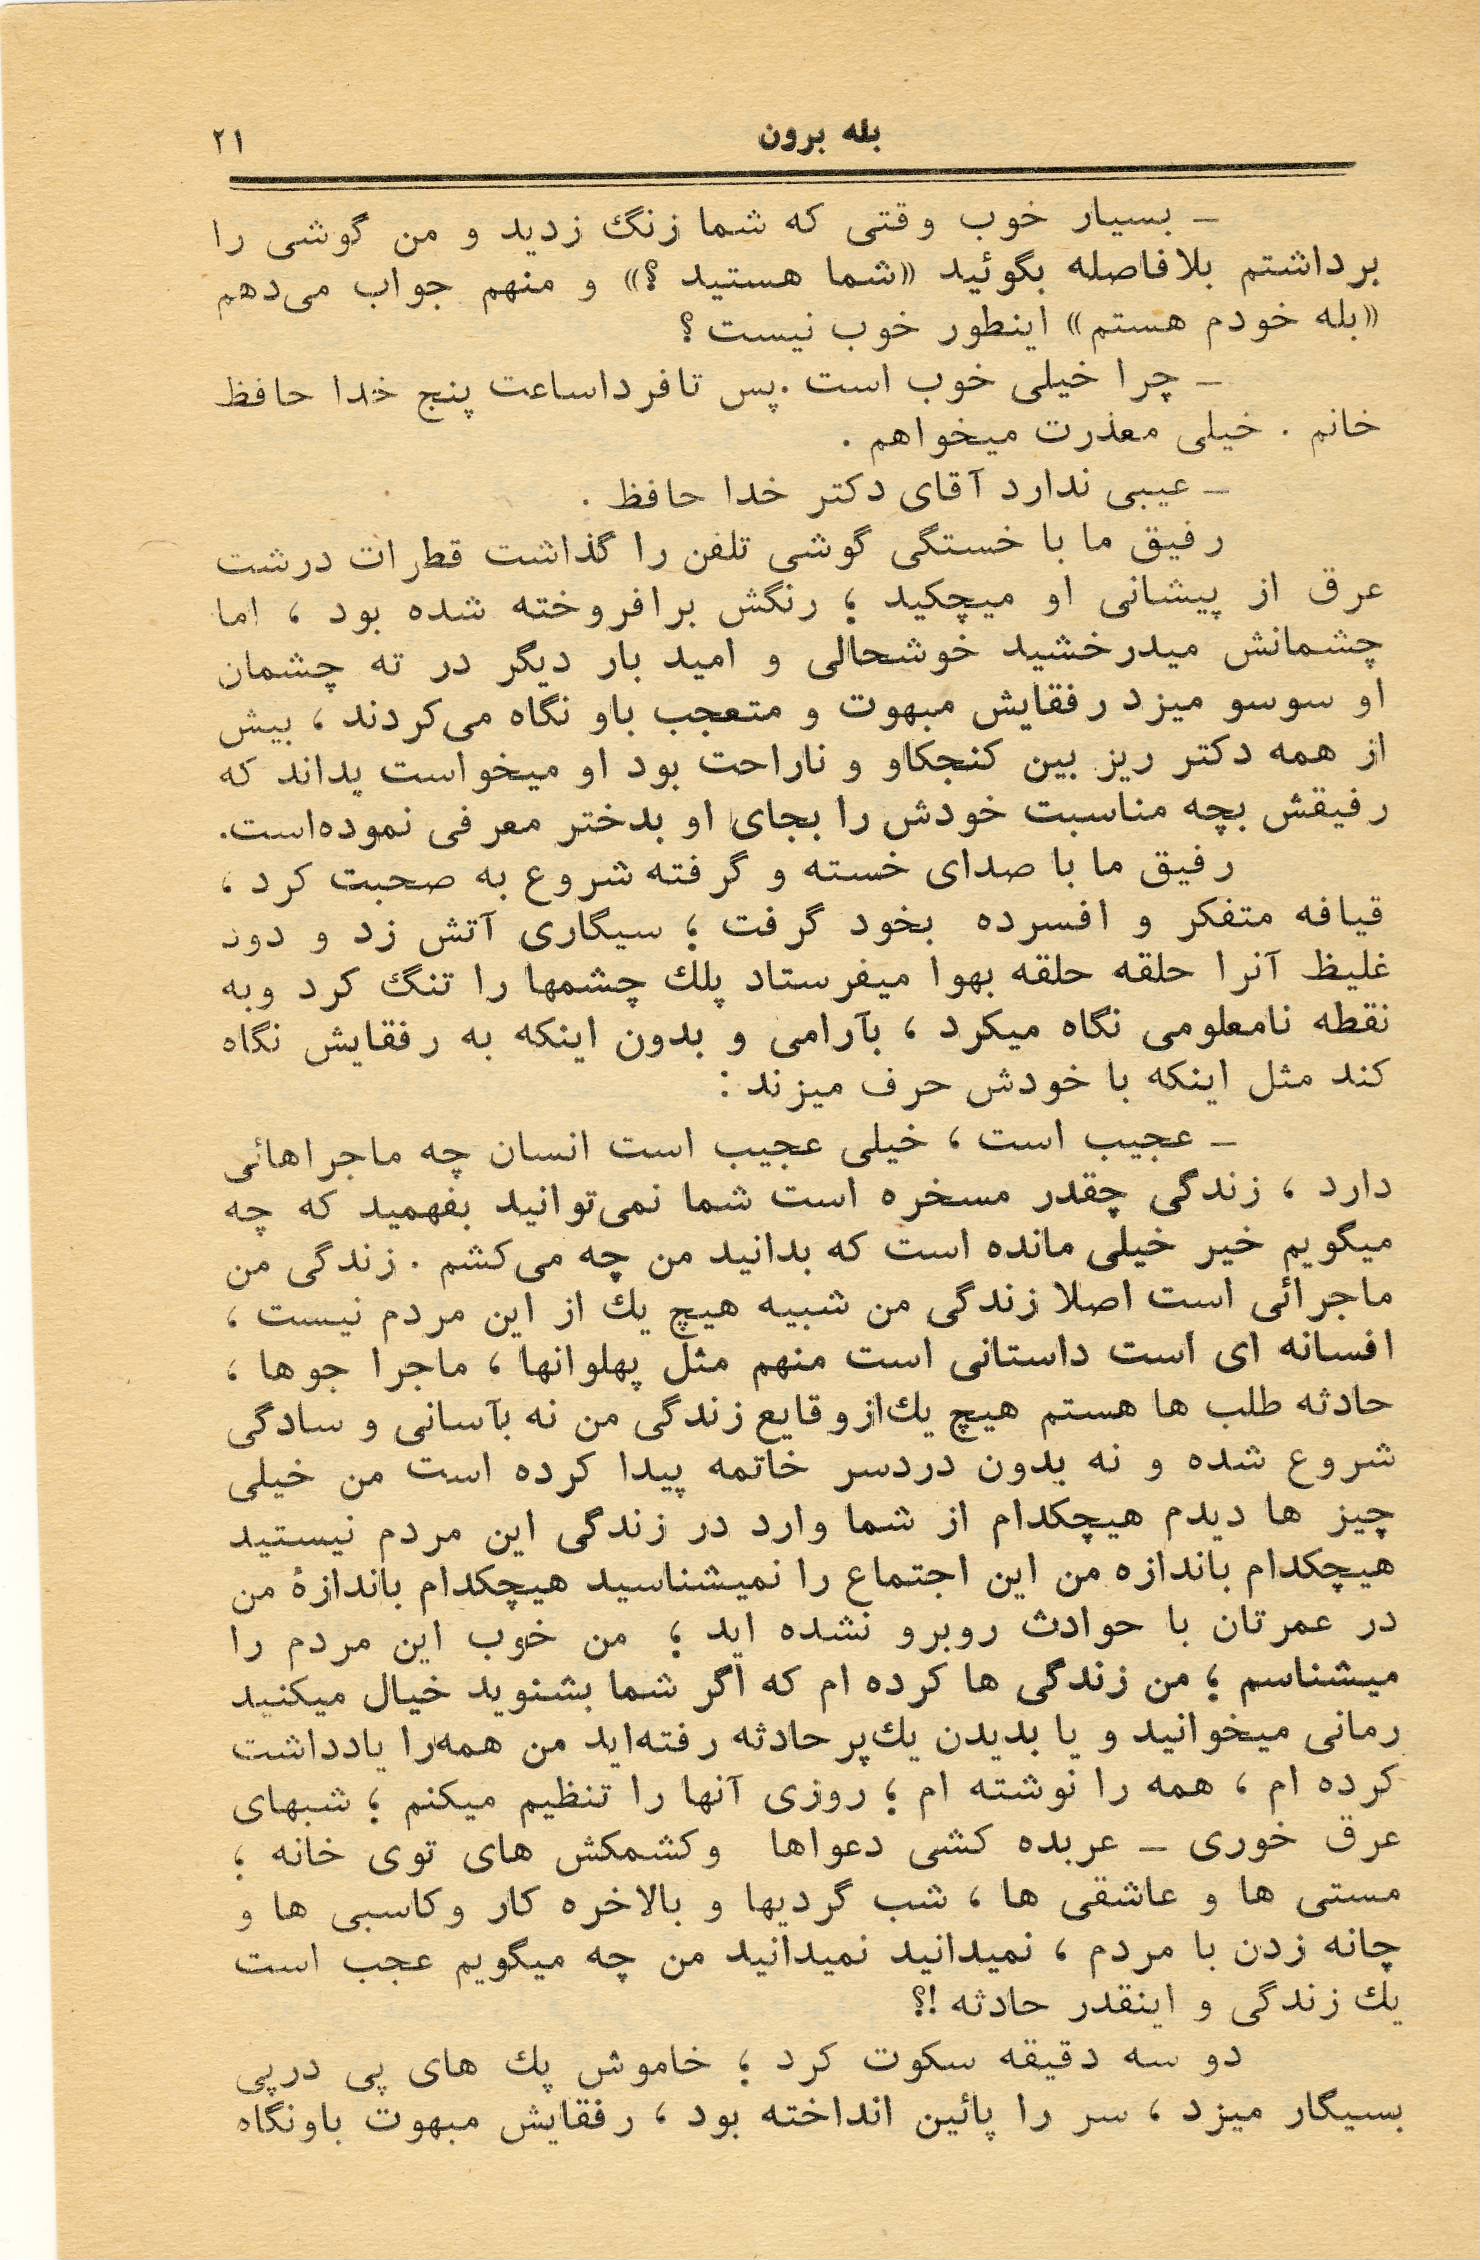 بله برون ۲۱
ـ بسیار خوب وقتی که شما زنگ زدید و من گوشی را
برداشتم بلافاصله بگوئید «شما هستید ؟» و منهم جواب می‌دهم
«بله خودم هستم» اینطور خوب نیست ؟
ـ چرا خیلی خوب است .پس تافرداساعت پنج خدا حافظ
خانم . خیلی معذرت میخواهم .
ـ عیبی ندارد آقای دکتر خدا حافظ .
رفیق ما با خستگی گوشی تلفن را گذاشت قطرات درشت
عرق از پیشانی او میچکید ؛ رنگش برافروخته شده بود ، اما
چشمانش میدرخشید خوشحالی و امید بار دیگر در ته چشمان
او سوسو میزد رفقایش مبهوت و متعجب باو نگاه می‌کردند ، بیش
از همه دکتر ریز بین کنجکاو و ناراحت بود او میخواست بداند که
رفیقش بچه مناسبت خودش را بجای او بدختر معرفی نموده‌است.
رفیق ما با صدای خسته و گرفته شروع به صحبت کرد ،
قیافه متفکر و افسرده بخود گرفت ؛ سیگاری آتش زد و دود
غلیظ آنرا حلقه حلقه بهوا میفرستاد پلك چشمها را تنگ کرد وبه
نقطه نامعلومی نگاه میکرد ، بآرامی و بدون اینکه به رفقایش نگاه
کند مثل اینکه با خودش حرف میزند :
ـ عجیب است ، خیلی عجیب است انسان چه ماجراهائی
دارد ، زندگی چقدر مسخره است شما نمی‌توانید بفهمید که چه
میگویم خیر خیلی مانده است که بدانید من چه می‌کشم . زندگی من
ماجرائی است اصلا زندگی من شبیه هیچ یك از این مردم نیست ،
افسانه ای است داستانی است منهم مثل پهلوانها ، ماجرا جوها ،
حادثه طلب ها هستم هیچ یك‌ازوقایع زندگی من نه بآسانی و سادگی
شروع شده و نه بدون دردسر خاتمه پیدا کرده است من خیلی
چیز ها دیدم هیچکدام از شما وارد در زندگی این مردم نیستید
هیچکدام باندازه من این اجتماع را نمیشناسید هیچکدام باندازهٔ من
در عمرتان با حوادث روبرو نشده اید ؛ من خوب این مردم را
میشناسم ؛ من زندگی ها کرده ام که اگر شما بشنوید خیال میکنید
رمانی میخوانید و یا بدیدن یك‌پرحادثه رفته‌اید من همه‌را یادداشت
کرده ام ، همه را نوشته ام ؛ روزی آنها را تنظیم میکنم ؛ شبهای
عرق خوری ـ عربده کشی دعواها وکشمکش های توی خانه ؛
مستی ها و عاشقی ها ، شب گردیها و بالاخره کار وکاسبی ها و
چانه زدن با مردم ، نمیدانید نمیدانید من چه میگویم عجب است
یك زندگی و اینقدر حادثه !؟
دو سه دقیقه سکوت کرد ؛ خاموش پك های پی درپی
بسیگار میزد ، سر را پائین انداخته بود ، رفقایش مبهوت باونگاه